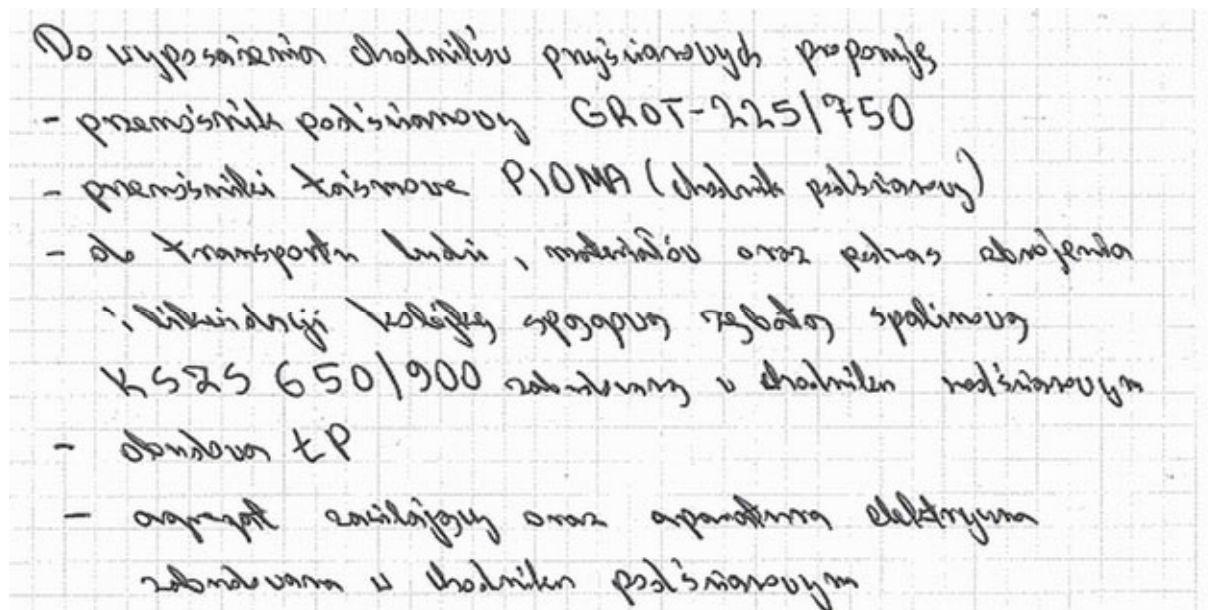 Do wyposażenia chodników przyścianowych proponuję
- przenośnik podścianowy GROT-225/750
- przenośniki taśmowe PIOMA (chodnik podścianowy)
- do transportu ludzi, materiałów oraz podczas zbrojenia
i likwidacji kolejkę spągową zębatą spalinową
KSZS 650/900 zabudowaną w chodniku nadścianowym
- obudowa ŁP
- agregat zasilający oraz aparatura elektryczna
zabudowana w chodniku podścianowym